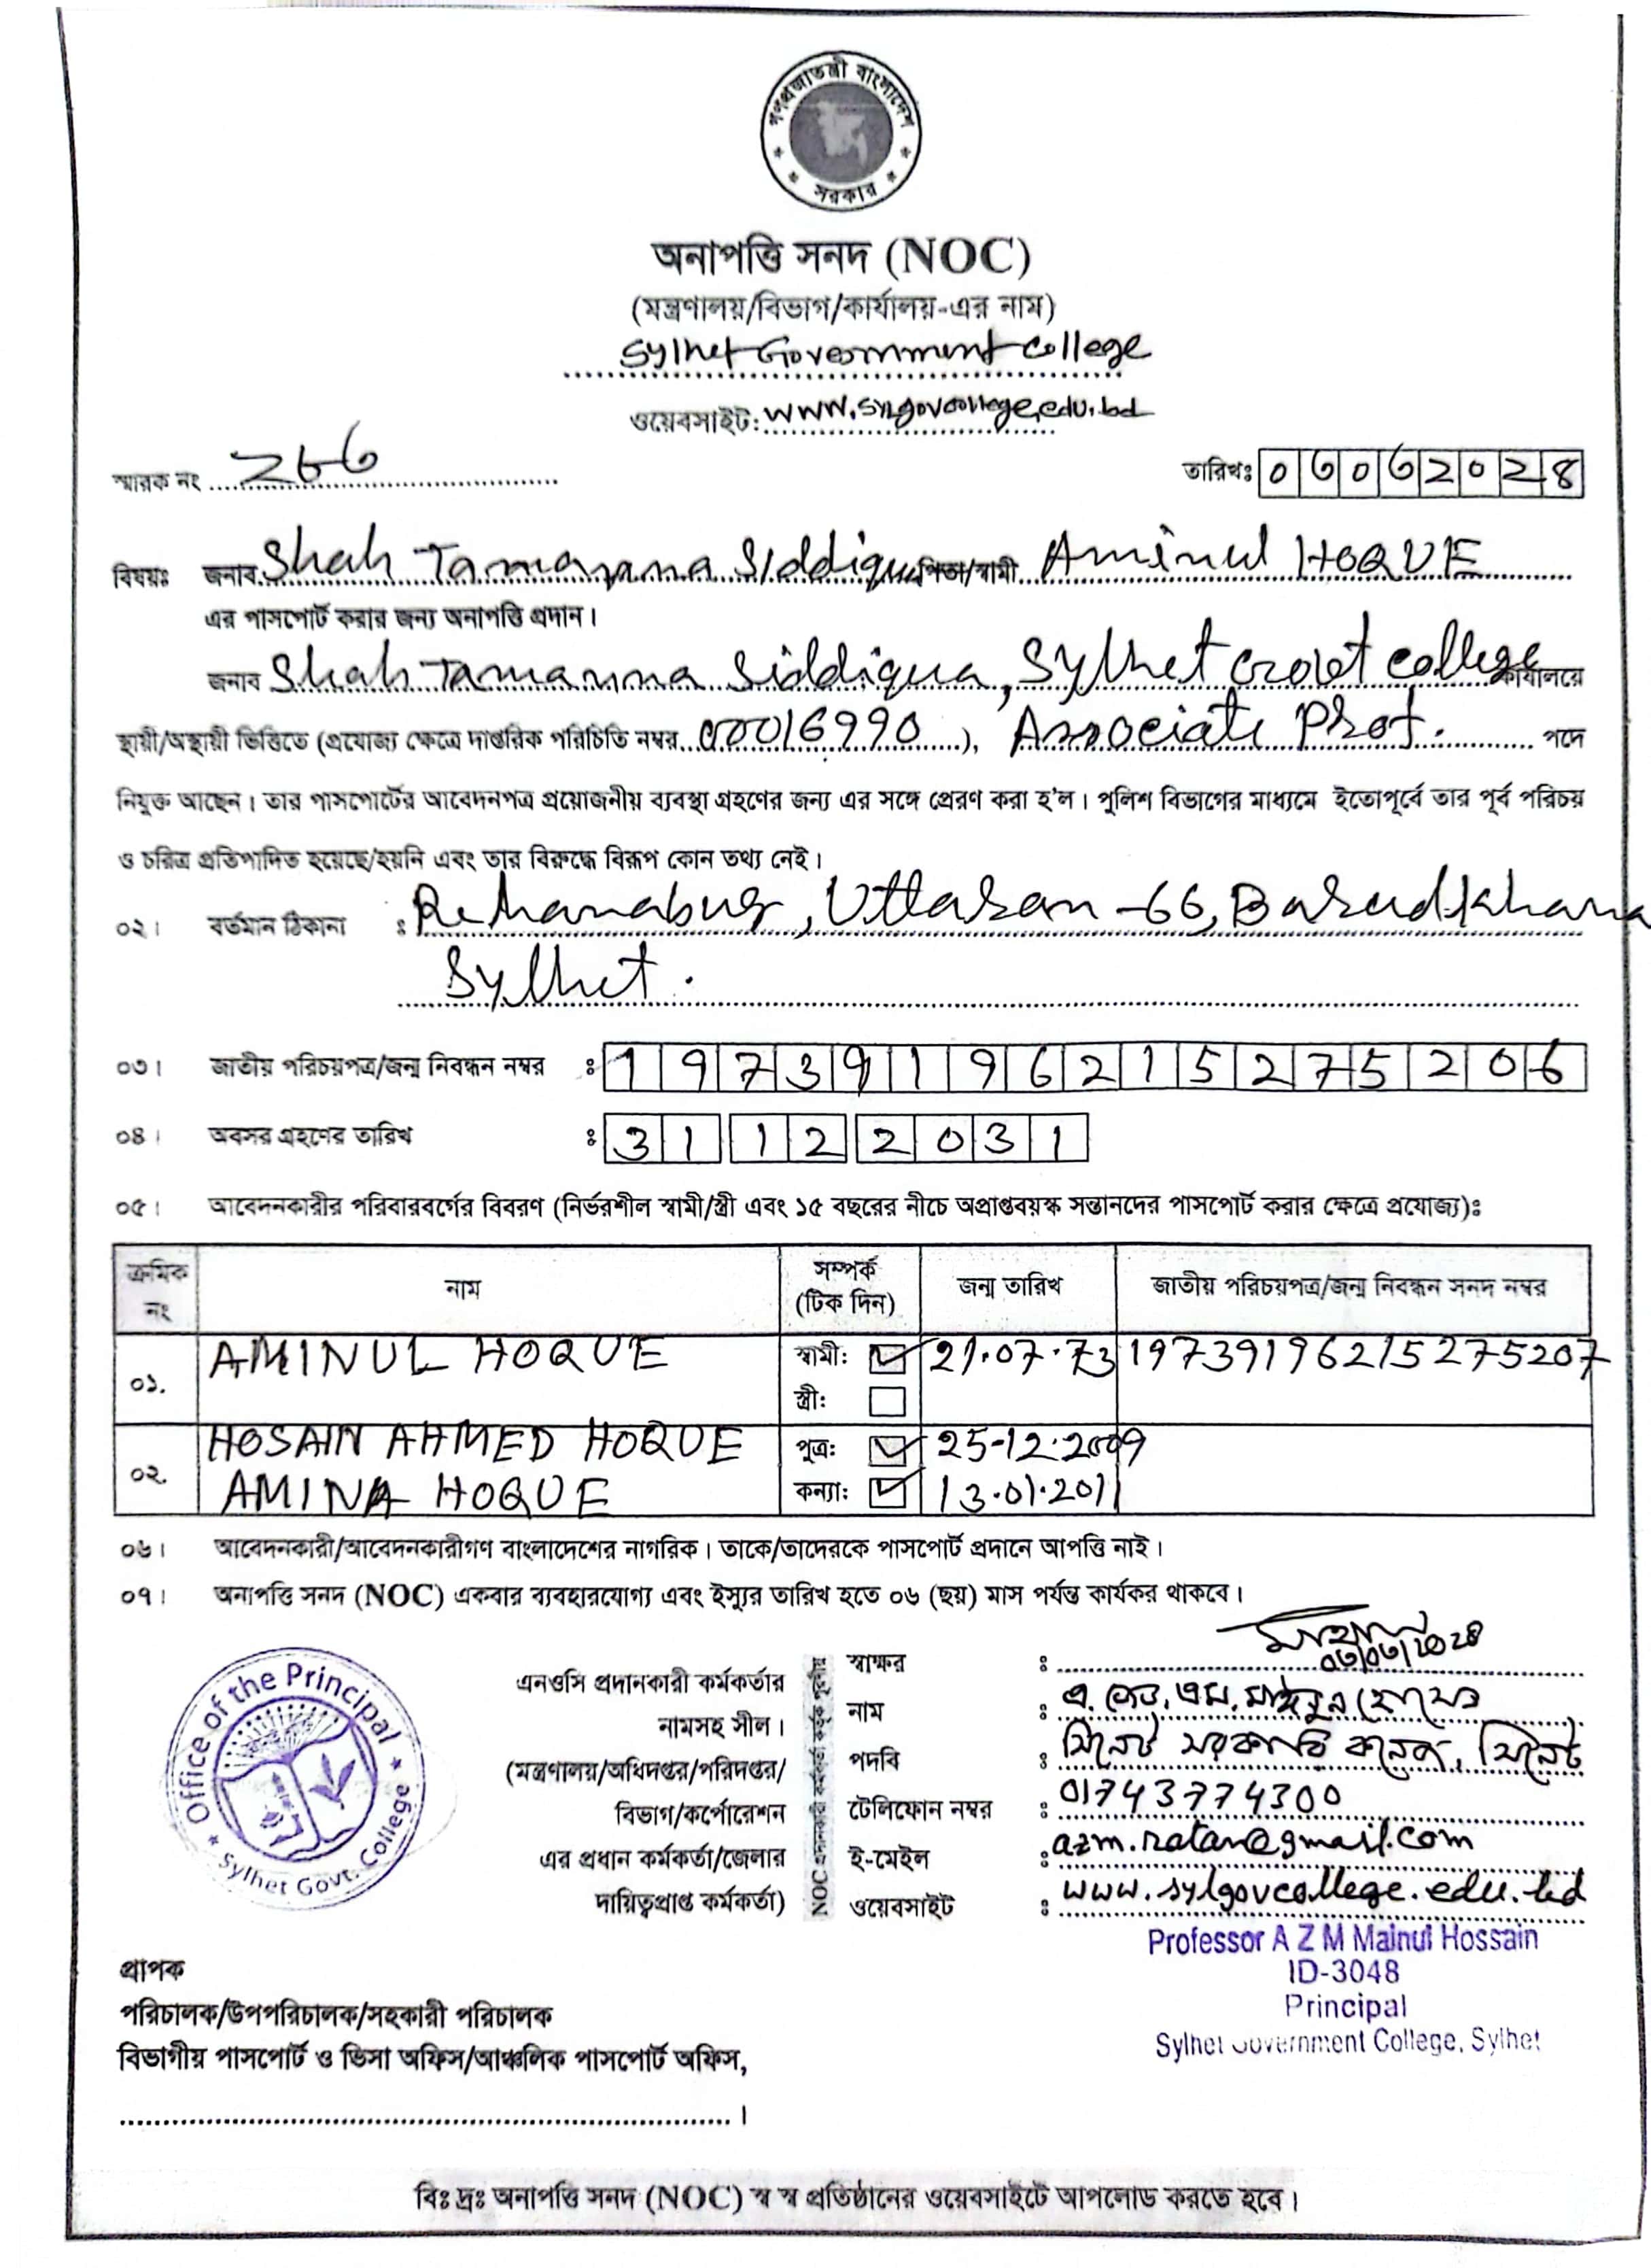 গণপ্রজাতন্ত্রী বাংলাদেশ
সরকার
অনাপত্তি সনদ (NOC)
(মন্ত্রণালয়/বিভাগ/কার্যালয়-এর নাম)
Sylhet Government College
ওয়েবসাইট: www.sylgovcollege.edu.bd
স্মারক নং
তারিখঃ
বিষয়ঃ জনাব Shah Tamanna Siddiqua পিতা/স্বামী Aminul HOQUE
এর পাসপোর্ট করার জন্য অনাপত্তি প্রদান।
জনাব Shah Tamanna Siddiqua, Sylhet Govt college কার্যালয়ে
স্থায়ী/অস্থায়ী ভিত্তিতে (প্রযোজ্য ক্ষেত্রে দাপ্তরিক পরিচিতি নম্বর 00016990), Associate Prof. পদে
নিযুক্ত আছেন। তার পাসপোর্টের আবেদনপত্র প্রয়োজনীয় ব্যবস্থা গ্রহণের জন্য এর সঙ্গে প্রেরণ করা হ'ল। পুলিশ বিভাগের মাধ্যমে ইতোপূর্বে তার পূর্ব পরিচয়
ও চরিত্র প্রতিপাদিত হয়েছে/হয়নি এবং তার বিরুদ্ধে বিরূপ কোন তথ্য নেই।
০২। বর্তমান ঠিকানা : Uttaran-66, Barudkhana
Sylhet.
০৩। জাতীয় পরিচয়পত্র/জন্ম নিবন্ধন নম্বর : 19739196215275206
০৪। অবসর গ্রহণের তারিখ : 31 12 2031
০৫। আবেদনকারীর পরিবারবর্গের বিবরণ (নির্ভরশীল স্বামী/স্ত্রী এবং ১৫ বছরের নীচে অপ্রাপ্তবয়স্ক সন্তানদের পাসপোর্ট করার ক্ষেত্রে প্রযোজ্য)ঃ
ক্রমিক নং নাম সম্পর্ক (টিক দিন) জন্ম তারিখ জাতীয় পরিচয়পত্র/জন্ম নিবন্ধন সনদ নম্বর
০১. AMINUL HOQUE স্বামী: 21.07.73 19739196215275207
স্ত্রী:
০২. HOSAIN AHMED HOQUE পুত্র: 25-12.2009
AMINA HOQUE কন্যা: 13.01.2011
০৬। আবেদনকারী/আবেদনকারীগণ বাংলাদেশের নাগরিক। তাকে/তাদেরকে পাসপোর্ট প্রদানে আপত্তি নাই।
০৭। অনাপত্তি সনদ (NOC) একবার ব্যবহারযোগ্য এবং ইস্যুর তারিখ হতে ০৬ (ছয়) মাস পর্যন্ত কার্যকর থাকবে।
Office of the Principal
Sylhet Govt. College
এনওসি প্রদানকারী কর্মকর্তার
নামসহ সীল।
(মন্ত্রণালয়/অধিদপ্তর/পরিদপ্তর/
বিভাগ/কর্পোরেশন
এর প্রধান কর্মকর্তা/জেলার
দায়িত্বপ্রাপ্ত কর্মকর্তা)
NOC প্রদানকারী কর্মকর্তা কর্তৃক পূরণীয়
স্বাক্ষর :
নাম : এ. জেড. এম. মাঈনুল হোসেন
পদবি : সিলেট সরকারি কলেজ, সিলেট
টেলিফোন নম্বর : 01743774300
ই-মেইল : azm.ratan@gmail.com
ওয়েবসাইট : www.sylgovcollege.edu.bd
Professor A Z M Mainul Hossain
ID-3048
Principal
Sylhet Government College, Sylhet
প্রাপক
পরিচালক/উপপরিচালক/সহকারী পরিচালক
বিভাগীয় পাসপোর্ট ও ভিসা অফিস/আঞ্চলিক পাসপোর্ট অফিস,
বিঃ দ্রঃ অনাপত্তি সনদ (NOC) স্ব স্ব প্রতিষ্ঠানের ওয়েবসাইটে আপলোড করতে হবে।